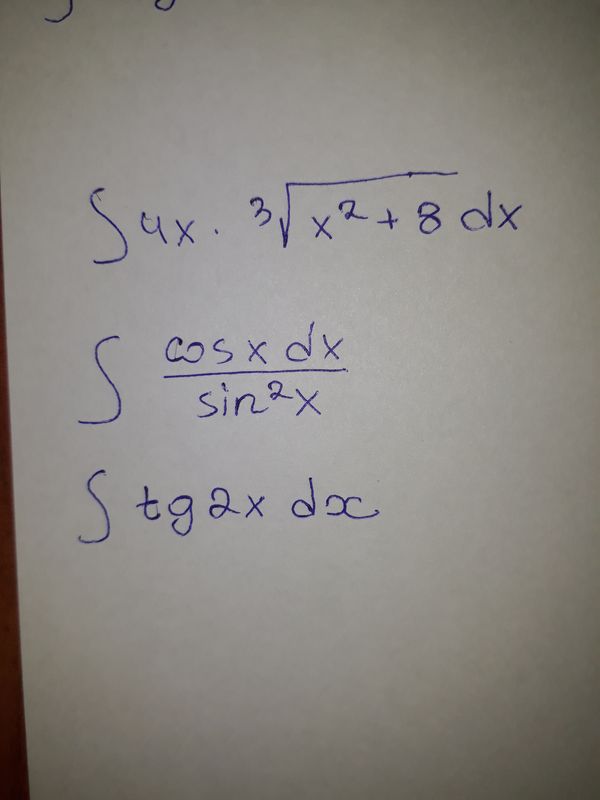 ∫ 4x · ³√(x² + 8) dx
∫ (cos x dx)/(sin² x)
∫ tg 2x dx